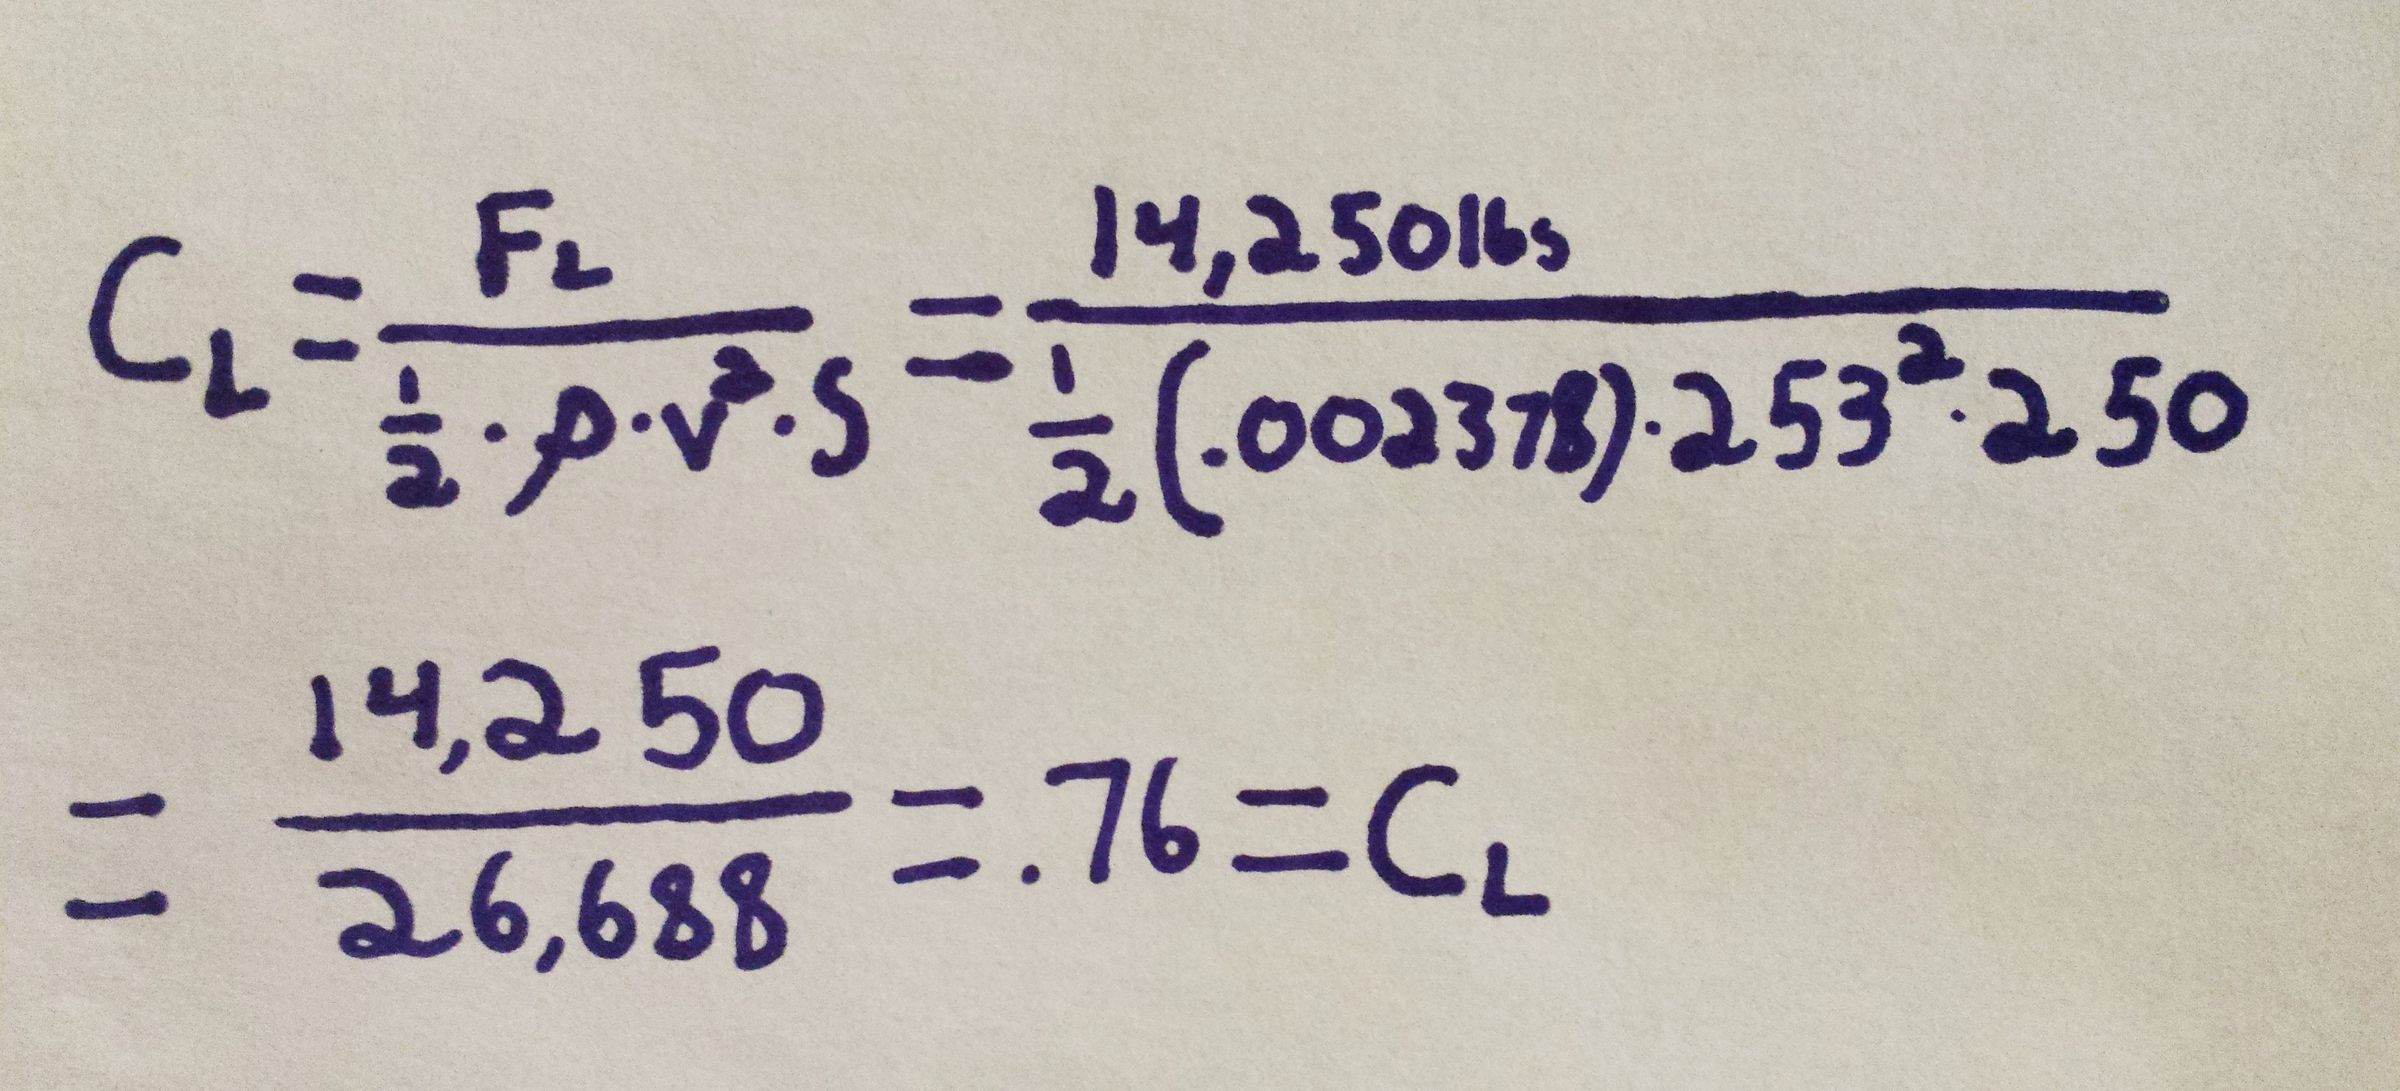 C_L = F_L / (1/2 · ρ · v² · S) = 14,250 lbs / (1/2 (.002378) · 253² · 250)
= 14,250 / 26,688 = .76 = C_L